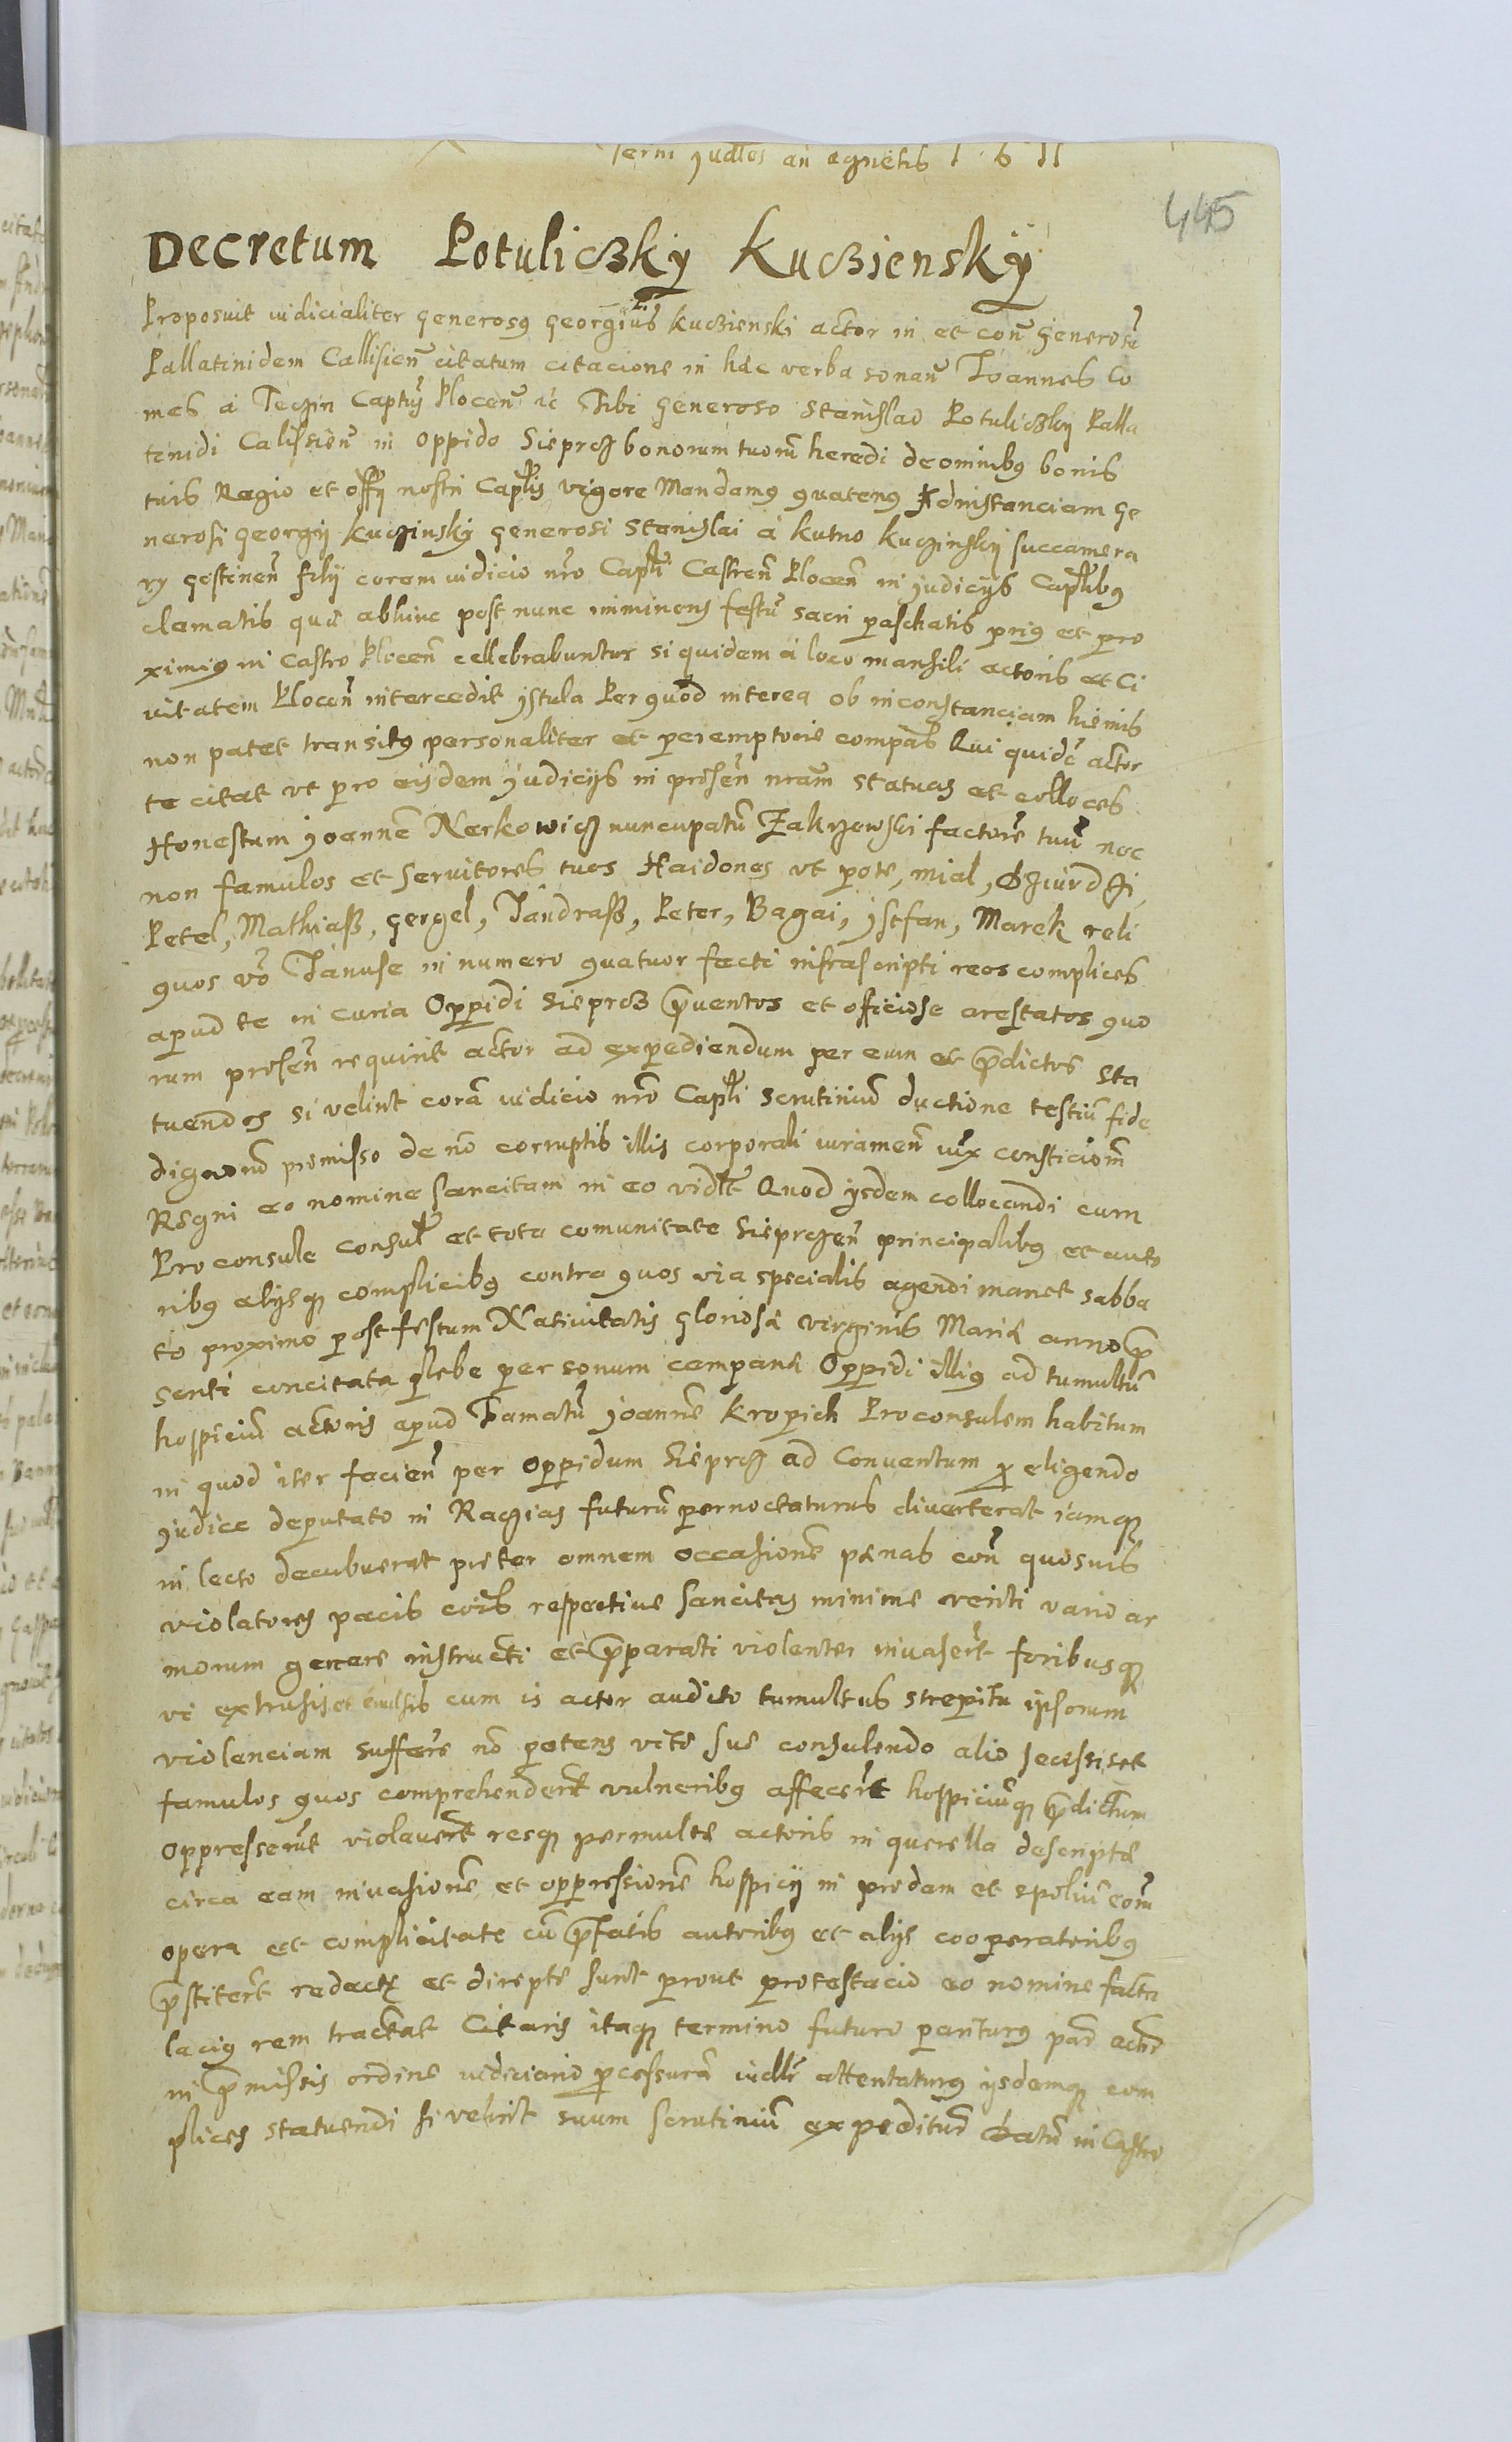 Term Judlos an agnetis 1 6 11
445
Decretum Potuliczky Kucziensky
Proposuit iudicialiter generosg georgius Kuczienski actor in et con generosu
Pallatinidem Callisien citatum citacione in hac verba sonan Joannes Co
mes a Teczin Captus Plocen ic Tibi generoso Stanislao Potuliczky Palla
tinidi Calissien in oppido Sieprcz bonorum tuorum heredi de omnibg bonis
tuis Regio et offy nostri Captlis vigore Mandamg quateng Adinstanciam ge
nerosi georgij kuczinsky generosi Stanislai a kutno kuczinsky succamera
ry gostinen filij coram iudicio nro Captli Castren Plocen in judicijs Captlibg
clamatis que abhinc post nunc imminens festu sacri paschatis prig et pro
ximig in Castro Plocen cellebrabuntur siquidem a loco mansili actoris et Ci
vitatem Plocen intercedit ystula Per quod interea ob inconstanciam hiemis
non patet transitg personaliter et peremptorie compas Qui quide actor
te citat vt pro eisdem judicijs in presen nram statuas et colloces
Honestum joanne Narkowicz nuncupatu Zakrzewski factore tuu nec
non famulos et servitores tuos Haidones vt pote, mial, Dziurdzi,
Petel, Mathiass, gergel, Jandrass, Peter, Bagai, jstfan, Marek reli
quos vo Januse in numero quatuor facti infrascripti reos complices
apud te in curia Oppidi Sieprcz pventos et officiose arestatos quo
rum presen requirit actor ad expediendum per eum et pdictos sta
tuendos si velint cora iudicio nro Captli scrutiniu ductione testiu fide
dignorum premisso de no corruptis illis corporali iuramen iux consticiom
Regni eo nomine sancitam in eo vidlt Quod ysdem collocandi cum
Proconsule Consul et tota comunitate Sieprczen principalibg et auto
ribg alijsq complicibg contra quos via specialis agendi manet sabba
to proximo post festum Nativitatis gloriosa virginis Maria anno p
senti concitata plebe per sonum campana Oppidi illig ad tumultu
hospiciu actoris apud Famatu joanne Kropich Proconsulem habitum
in quod iter facien per oppidum Sieprcz ad Conventum p eligendo
judice deputato in Raczias futuru pernoctaturus diverterat iamq
in lecto decubuerat preter omnem occasione penas con quosvis
violatores pacis cois respective sancitas minime veriti vario ar
morum genere instructi et pparati violenter invasert foribusq
vi extrusis et evulsis cum is actor audito tumultus strepitu ipsorum
violenciam sufferre no potens vite sue consulendo alio secessisset
famulos quos comprehendert vulneribg affecert hospiciuq pdictum
oppresserut violavert resq permulte actoris in querella descripte
circa eam invasione et oppressione hospicij in predam et spoliu eom
opera et complicitate cu pfatis autoribg et alijs cooperatoribg
pstitert redacte et direpte sunt prout protestacio eo nomine facta
lacig rem tractat Citaris itaq termino futuro pariturg par actori
in pmissis ordine iudiciario pcessura iudlr attentaturg ysdemq com
plices statuendi si velint suum scrutiniu expeditur Datu in Castro